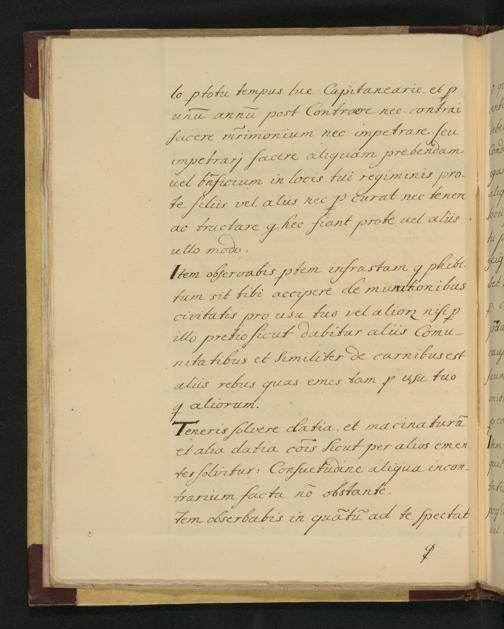 lo ptotu tempus tue Capitanearie. et p
unū annū post Contraere nec contrai
facere mr̄imonium nec impetrare, seu
impetrarj facere aliquam prebendam
vel bn̄ficium in locis tui regiminis pro
te filiis vel aliis nec p curat nec tenen
ac tractare q hec fiant prote vel aliis
ullo modo.
Item observabis ptem infrastam q phibi
tum sit tibi accipere de munitionibus
civitatis pro usu tuo vel alior nisi p
illo pretio sicut dabitur aliis Comu-
nitatibus et similiter de carnibus est
aliis rebus quas emes tam p usu tuo
q aliorum.
Teneris solvere datia, et macinaturā
et alia datia cōis sicut per alios emen
tes solvitur: Consuetudine aliqua incon-
trarium facta nō obstante.
tem obserbabis in quātū ad te spectat